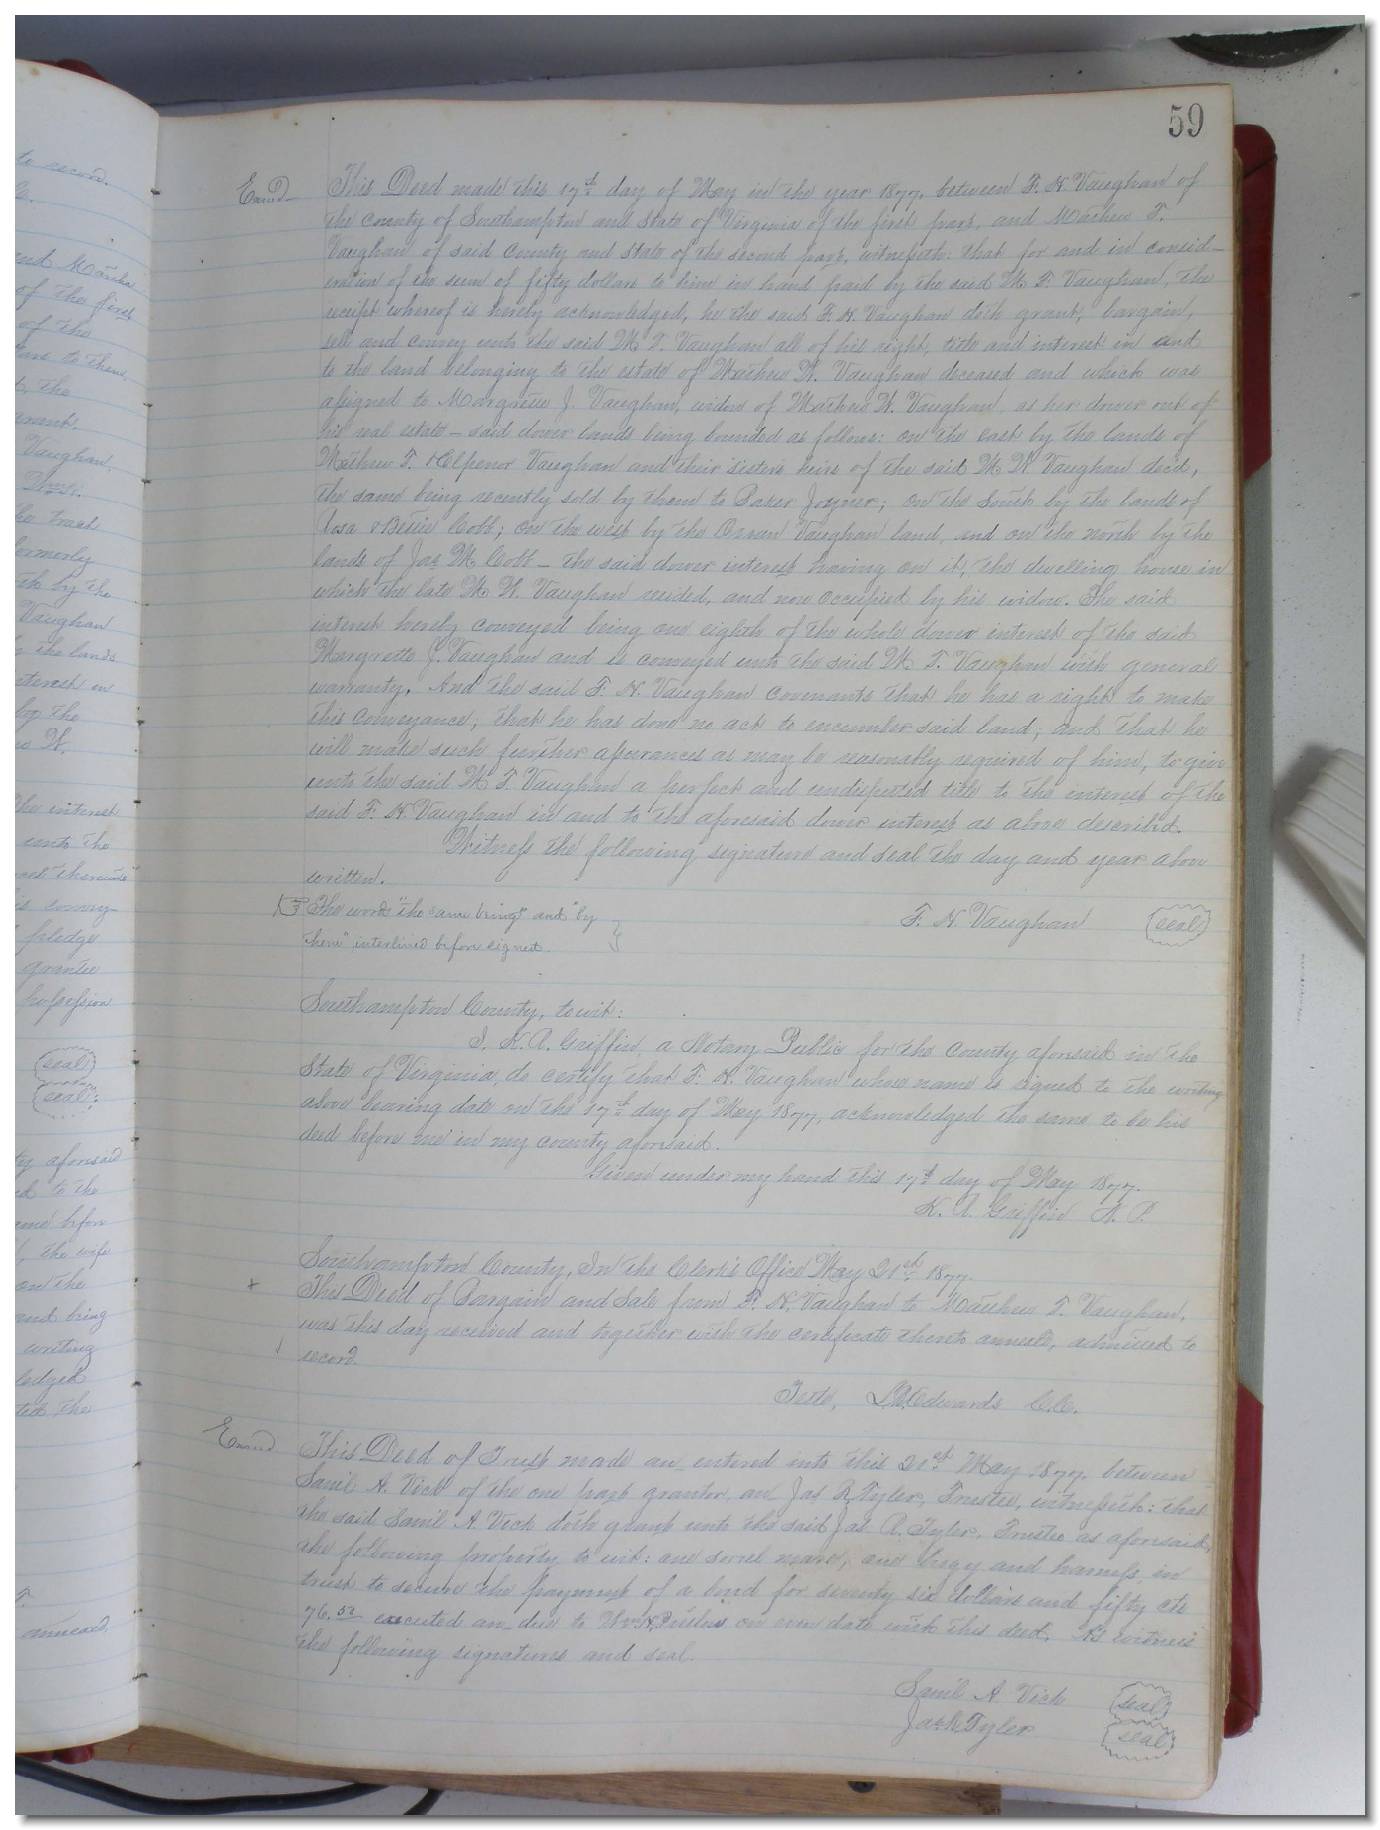 59
Exmd
This Deed made this 17th day of May in the year 1877, between F. N. Vaughan of
the county of Southampton and State of Virginia of the first part, and Mathew T.
Vaughan of said county and state of the second part, witnesseth: that for and in consid-
eration of the sum of fifty dollars to him in hand paid by the said M T. Vaughan, the
receipt whereof is hereby acknowledged, he the said F. N. Vaughan doth grant, bargain,
sell and convey unto the said M. T. Vaughan all of his right, title and interest in and
to the land belonging to the estate of Mathew W. Vaughan deceased and which was
assigned to Margrette J. Vaughan, widow of Mathew W. Vaughan, as her dower out of
his real estate - said dower lands being bounded as follows: on the east by the lands of
Mathew T. & Elpenor Vaughan and their sisters heirs of the said M W Vaughan decd,
the same being recently sold by them to Baker Joyner; on the South by the lands of
Rosa & Bettie Cobb; on the west by the Vaughan land, and on the north by the
lands of Jas M. Cobb - the said dower interest having on it, the dwelling house in
which the late M. W. Vaughan resided, and now occupied by his widow. The said
interest hereby conveyed being one eighth of the whole dower interest of the said
Margrette J. Vaughan and is conveyed unto the said M. T. Vaughan with general
warranty. And the said F. N. Vaughan covenants that he has a right to make
this conveyance; that he has done no act to encumber said land; and that he
will make such further assurances as may be reasonably required of him, to give
unto the said M. T Vaughan a perfect and undisputed title to the interest of the
said F. N. Vaughan in and to the aforesaid dower interest as above described.
Witness the following signature and seal the day and year above
written.
The words "the same being" and "by
them" interlined before signed.
F. N. Vaughan (seal)
Southampton County, to wit:
I. K. A. Griffin, a Notary Public for the County aforesaid in the
State of Virginia, do certify that F. N. Vaughan whose name is signed to the writing
above bearing date on the 17th day of May 1877, acknowledged the same to be his
deed before me in my county aforesaid.
Given under my hand this 17th day of May 1877.
K. A. Griffin N. P.
Southampton County, In the Clerk's Office May 21st 1877.
This Deed of Bargain and Sale from F. N. Vaughan to Mathew T. Vaughan,
was this day received and together with the certificate thereto annexed, admitted to
record.
Teste, Edwards C.C.
Exmd
This Deed of Trust made an entered into this 21st May 1877. between
Saml A. Vick of the one part grantor, an Jas R. Tyler, Trustee, witnesseth: that
the said Saml A Vick doth grant unto the said Jas R. Tyler, Trustee as aforesaid,
the following property to wit: one sorrel mare, one bugy and harness, in
trust to secure the payment of a bond for seventy six dollars and fifty cts
executed an due to Wm H on even date with this deed. As witness
the following signatures and seal.
Saml A Vick (seal)
Jas R Tyler (seal)